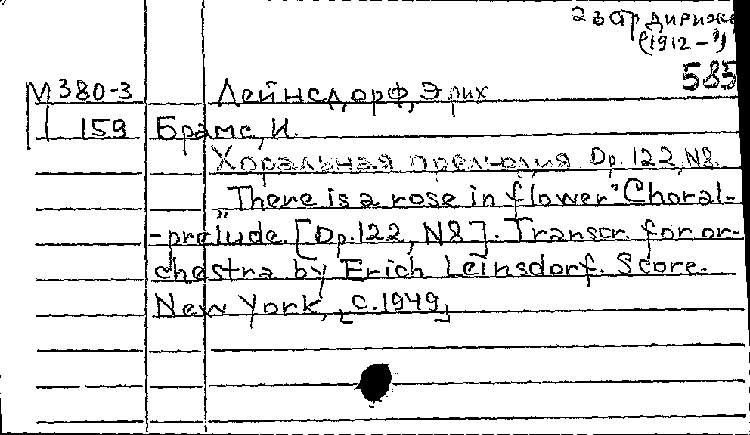 зар дириже
(1912-?)
585
М380-3 Лейнсдорф, Эрих
159 Брамс, И.
Хоральная прелюдия Op.122, N8.
"There is a rose in flower" Choral-
-prelude. [Op.122, N8]. Transcr. for or-
chestra by Erich Leinsdorf. Score.
New York, [c.1949]